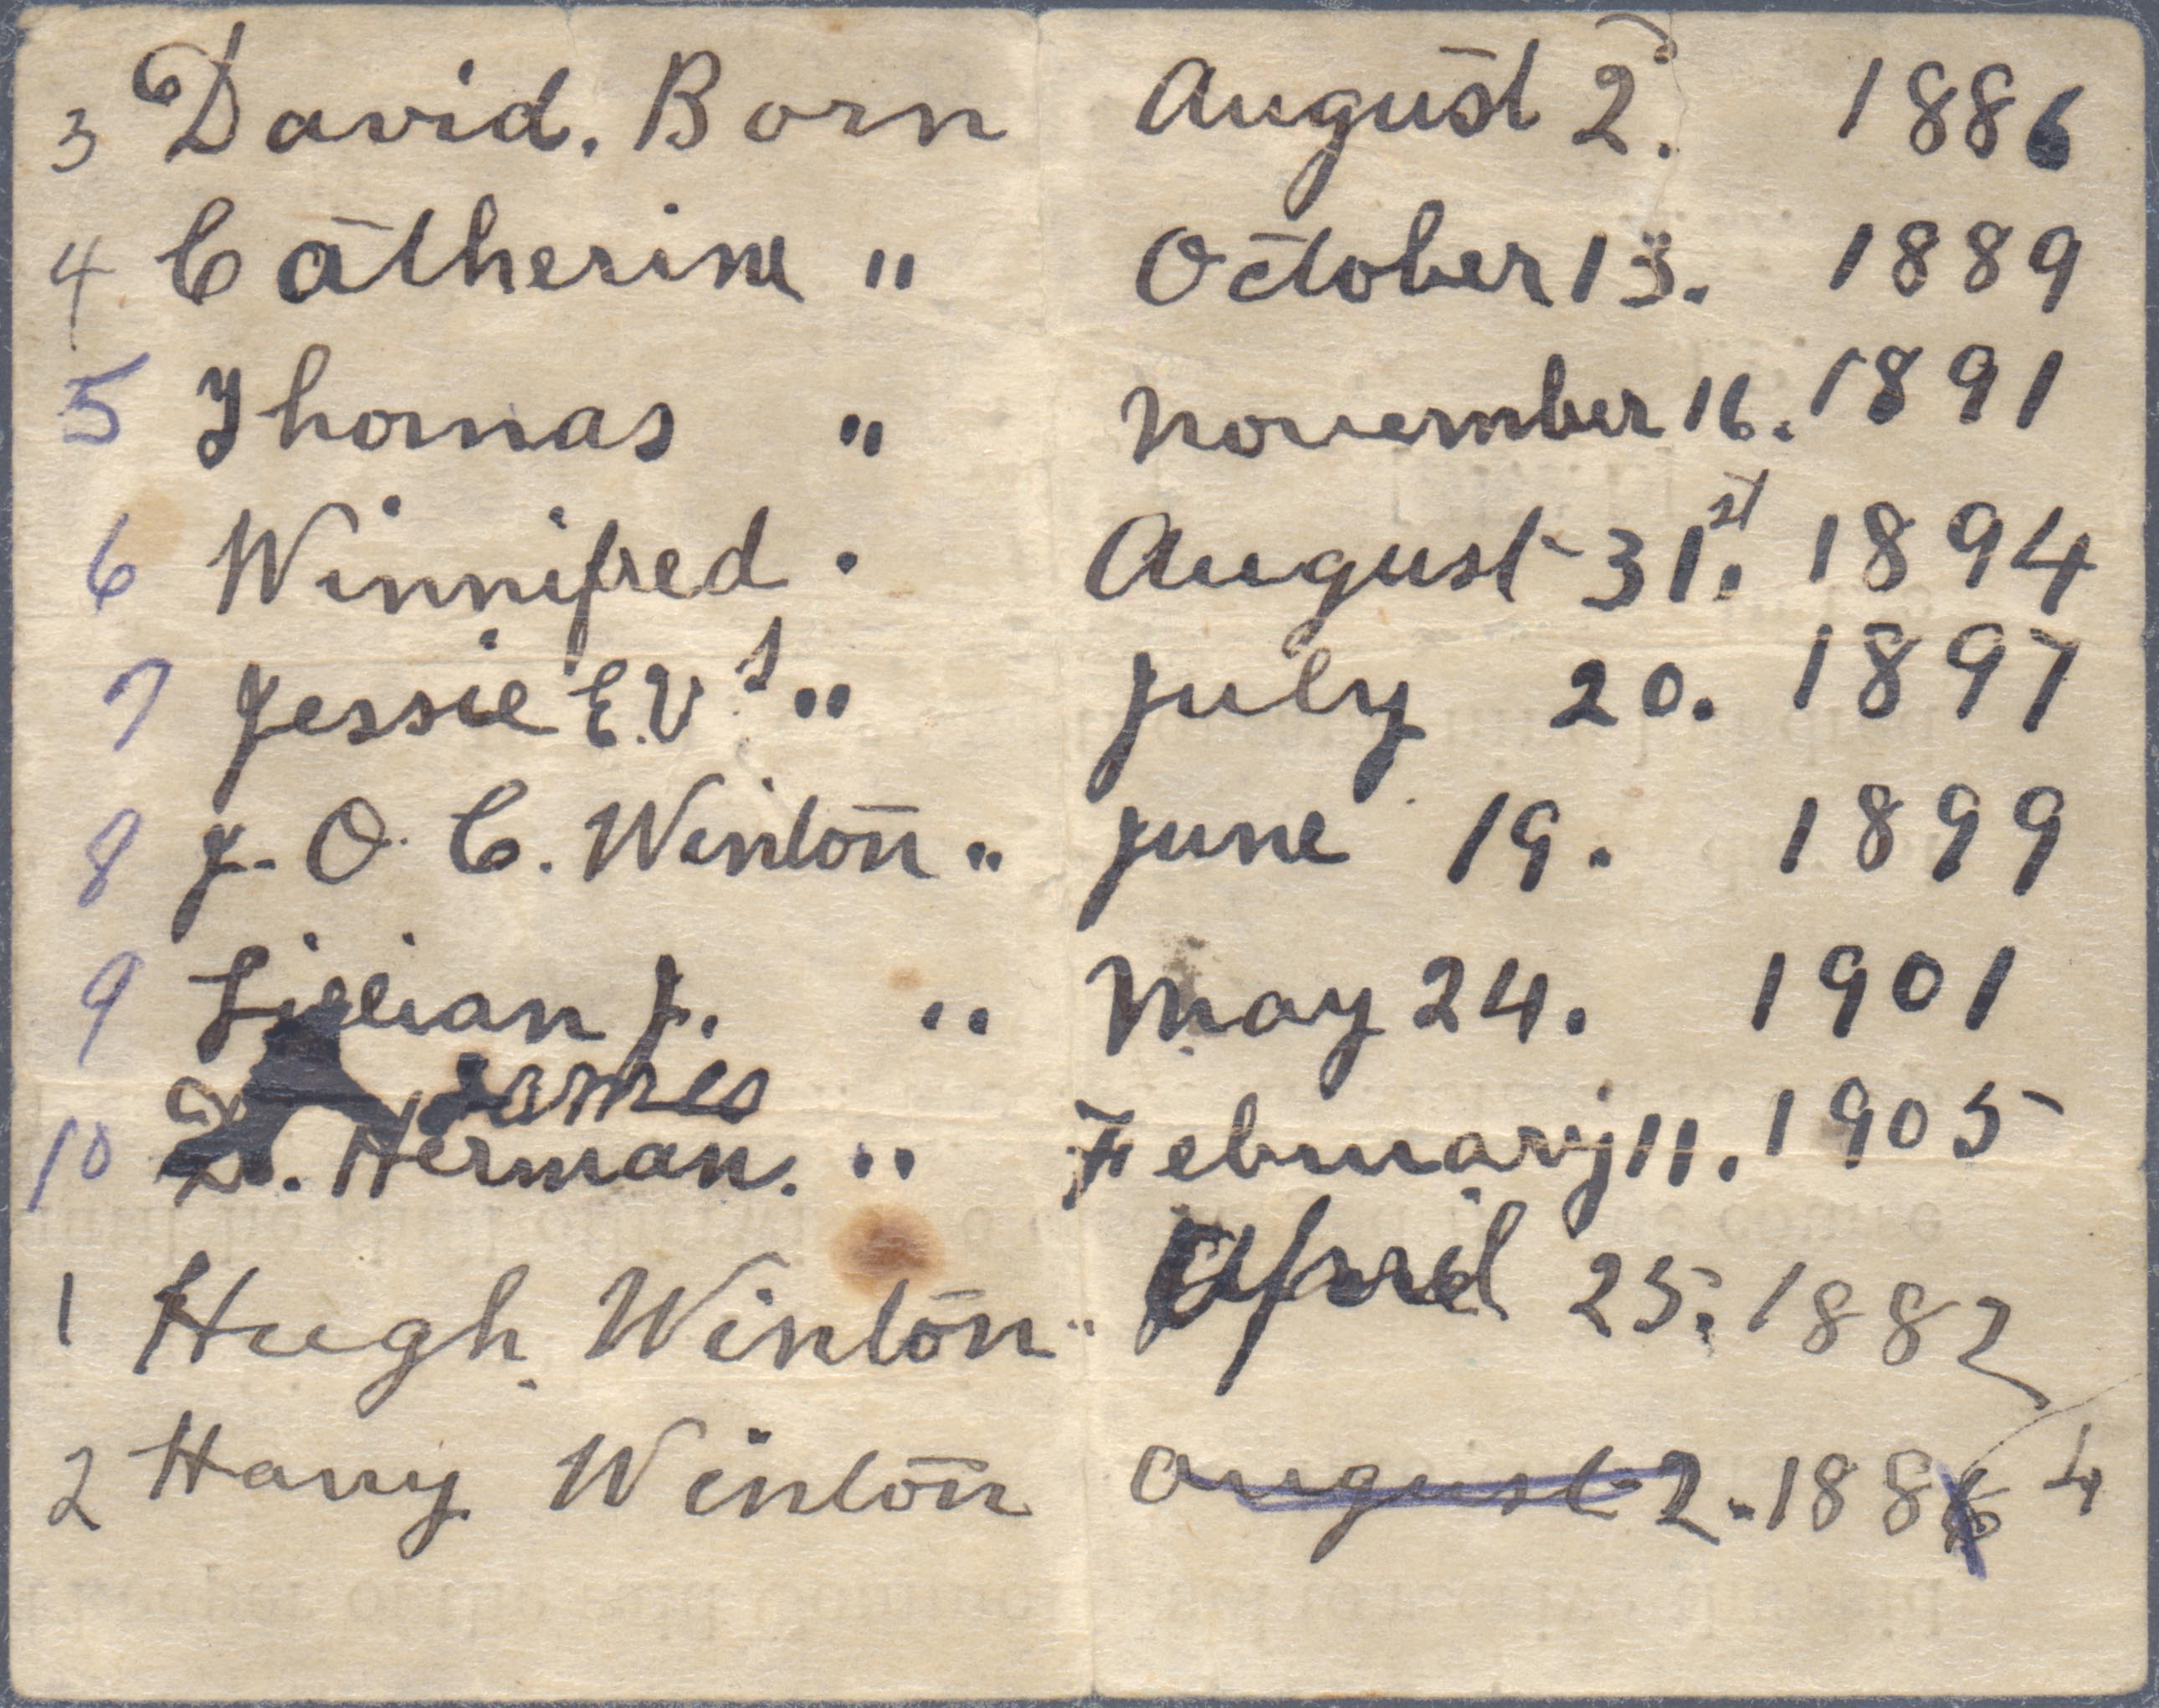 3 David. Born August 2. 1886
4 Catherine " October 13. 1889
5 Thomas " November 16. 1891
6 Winnifred . August 31st. 1894
7 Jessie E.V. " July 20. 1897
8 J. O. C. Winton " June 19. 1899
9 Lillian J. " May 24. 1901
James
10 . Herman. " February 11. 1905
1 Hugh Winton " April 25. 1882
2 Harry Winton August 2. 1886 4